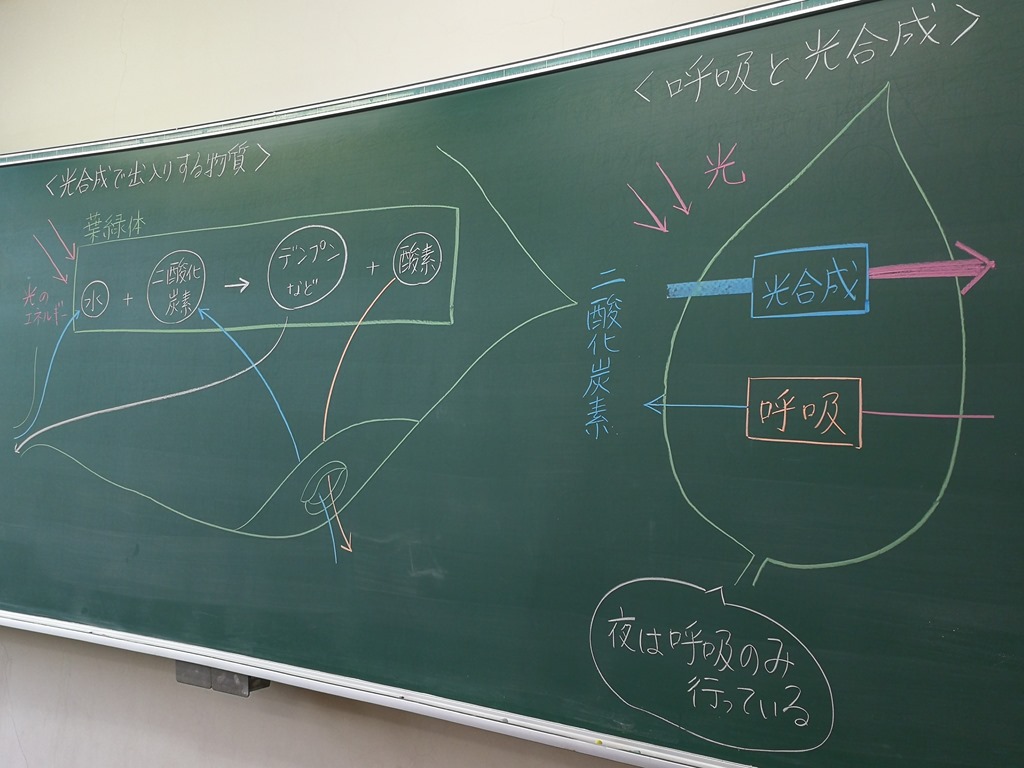 ＜光合成で出入りする物質＞
葉緑体
光の
エネルギー
水 + 二酸化 → デンプン + 酸素
炭素
など
＜呼吸と光合成＞
光
二酸化炭素
光合成
呼吸
夜は呼吸のみ
行っている